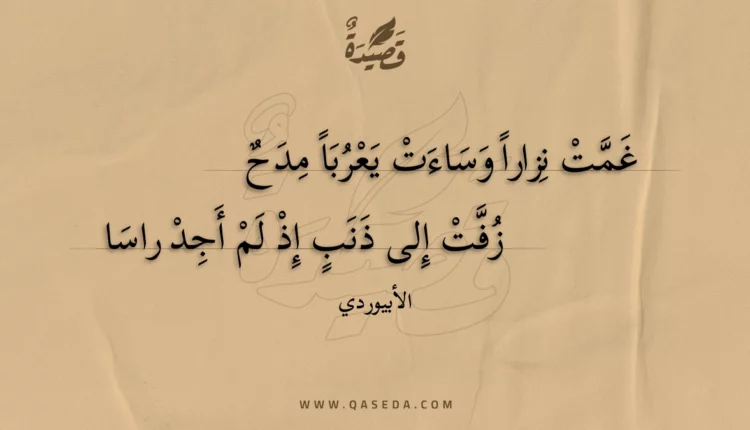 قَصِيدَةٌ
غَمَّتْ نِزاراً وَسَاءَتْ يَعْرُبَاً مِدَحٌ
زُفَّتْ إِلى ذَنَبٍ إِذْ لَمْ أَجِدْ راسَا
الأبيوردي
WWW.QASEDA.COM